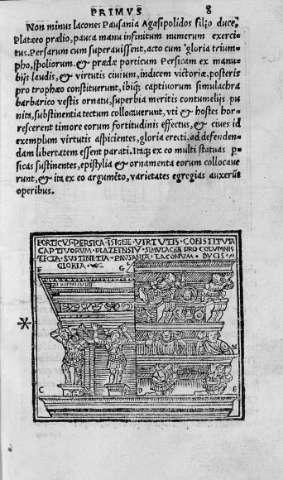 PRIMVS 8
Non minus lacones Pausania Agesipolidos filio duce,
Plateeo prœlio, pauca manu infinitum numerum exerci-
tus Persarum cum superauissent, acto cum gloria trium-
pho, spoliorum & prædæ porticum Persicam ex manu-
bijs laudis, & virtutis ciuium, indicem victoriæ, posteris
pro trophæo constituerunt, ibiq; captiuorum simulachra
barbarico vestis ornatu, superbia meritis contumelijs pu
nita, sustinentia tectum collocauerunt, vti & hostes hor-
rescerent timore eorum fortitudinis effectus, & ciues id
exemplum virtutis aspicientes, gloria erecti, ad defenden-
dam libertatem essent parati. Itaq; ex eo multi statuas per
sicas sustinentes, epistylia & ornamenta eorum collocaue
runt, & ita ex eo argumēto, varietates egregias auxerūt
operibus.
PORTICVS PERSICA ISIGNE VIRTVTIS CONSTITVTA
CAPTIVORVM PLATENSIV SIMVLACRA PRO COLVMNIS
TECTA SVSTINETIA PAVSANIA LACONVM DVCIS
GLORIA
F G
C D E